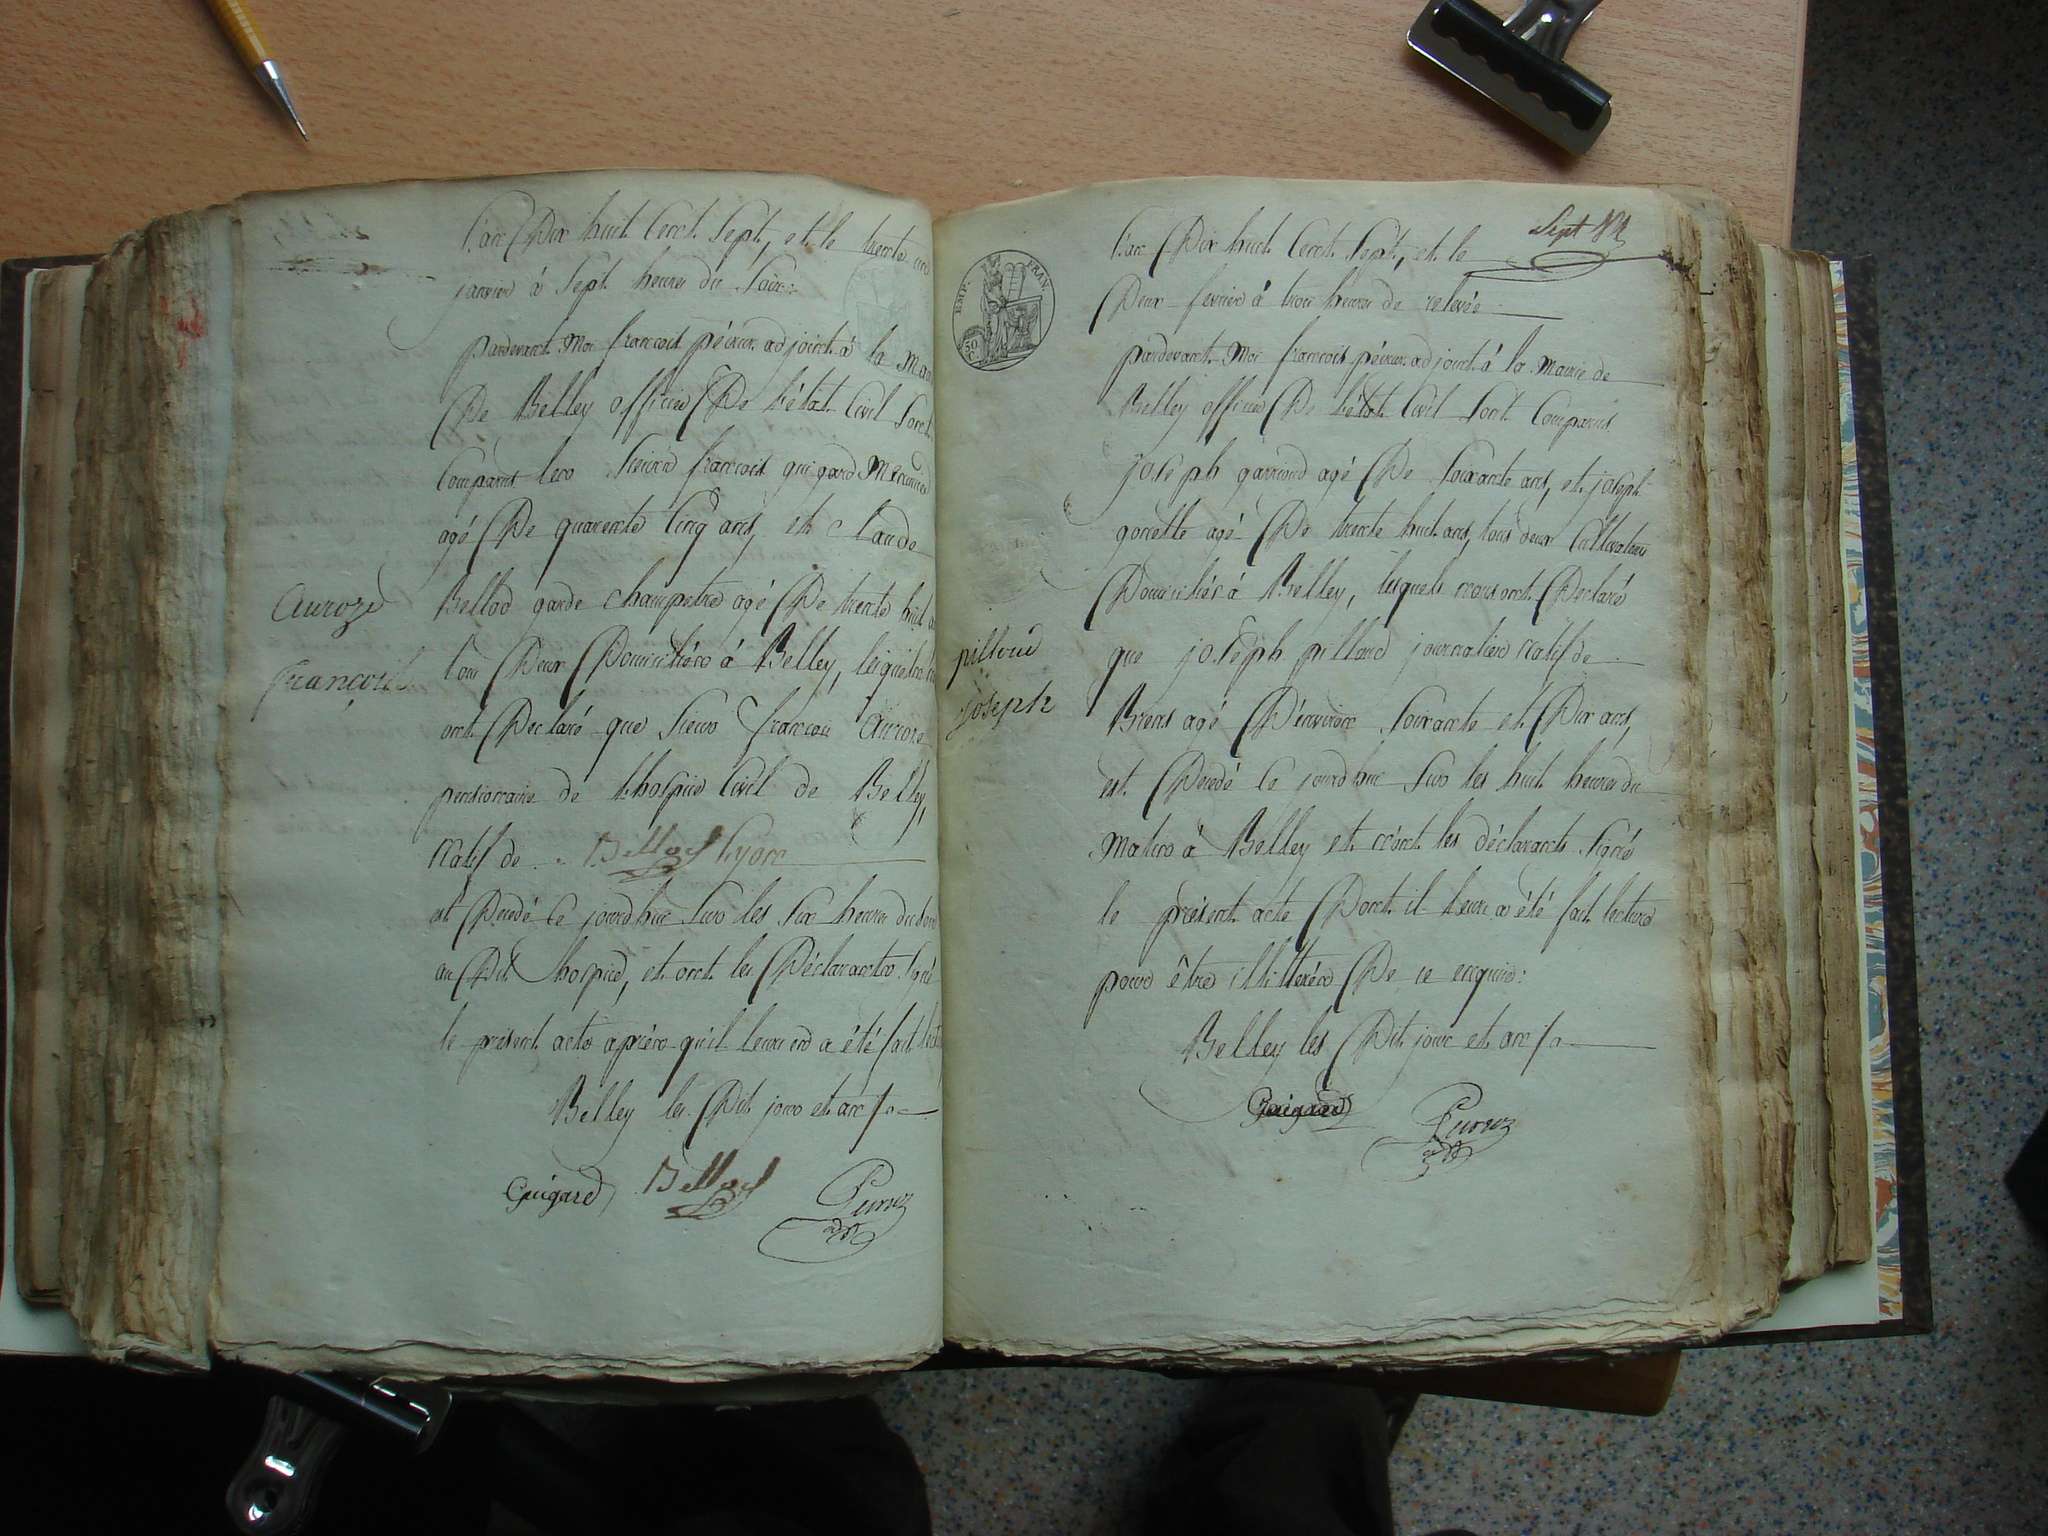 L'an Dix huit Cent Sept, et le trente un
janvier à Sept heures du Soir:
pardevant Moi françois péroux adjoint à la Mai
De Belley officier De l'état Civil Sont
Comparus les Sieurs françois guigard Menuisier
agé De quarente Cinq ans, et Claude
Bellod garde champetre agé De trente huit
tous Deux Domiciliés à Belley, lesquels
ont Declaré que Sieur françois Auroze
pensionnaire de l'hospice Civil de Belley,
Natif de Bellod Lyon
est Decedé Ce jourd'hui Sur les Six heures du Soir
au Dit hospice, et ont les Déclarants Signé
le présent acte après qu'il leur en a été fait lect
Belley les Dit jour et an
Guigard Bellod
Auroze
françois
Sept
L'an Dix huit Cent Sept, et le
Deux fevrier à trois heures de relevée
pardevant Moi françois péroux adjoint à la Mairie de
Belley officier De l'état Civil Sont Comparus
joseph garnoud agé De Soixante ans, et joseph
gonette agé De trente huit ans, tous deux Cultivateurs
Domiciliés à Belley, lesquels nous ont Déclaré
que joseph pilloud journalier Natif de
Brens agé D'environ Soixante et Dix ans,
est Decedé Ce jourd'hui Sur les huit heures du
Matin à Belley et n'ont les déclarants Signé
le présent acte Dont il leur a été fait lecture
pour être illitterés De ce enquis:
Belley les Dit jour et an
Guigard
pilloud
joseph
EMP. FRAN.
50
C.